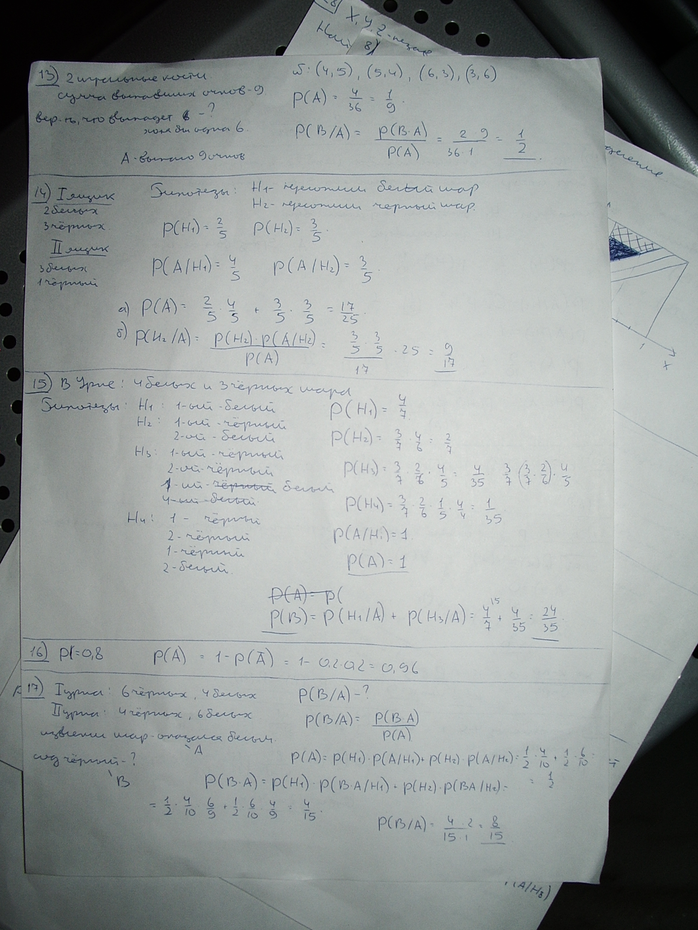 X, Y, Z - незав
Най
13) 2 игральные кости.
сумма выпавших очков - 9
вер-ть, что выпадет 6 - ?
хотя бы одна 6.
A - выпало 9 очков
б: (4,5), (5,4), (6,3), (3,6)
P(A) = 4/36 = 1/9
P(B/A) = P(B·A)/P(A) = 2·9/36·1 = 1/2
14) I ящик
2 белых
3 чёрных
II ящик
3 белых
1 чёрный
Гипотезы: H1 - переложили белый шар
H2 - переложили чёрный шар
P(H1) = 2/5 P(H2) = 3/5.
P(A/H1) = 4/5 P(A/H2) = 3/5.
а) P(A) = 2/5 · 4/5 + 3/5 · 3/5 = 17/25.
б) P(H2/A) = P(H2)·P(A/H2)/P(A) = 3/5 · 3/5 / 17 · 25 = 9/17
15) В урне: 4 белых и 3 чёрных шара
Гипотезы: H1: 1-ый - белый
H2: 1-ый - чёрный
2-ой - белый
H3: 1-ый - чёрный
2-ой - чёрный
1-ый чёрный белый
4-ый белый
H4: 1 - чёрный
2 - чёрный
1 - чёрный
2 - белый.
P(H1) = 4/7
P(H2) = 3/7 · 4/6 = 2/7
P(H3) = 3/7 · 2/6 · 4/5 = 4/35 3/7 (3/7 · 2/6) · 4/5
P(H4) = 3/7 · 2/6 · 1/5 · 4/4 = 1/35
P(A/Hi) = 1
P(A) = 1
P(A) = P(
P(B) = P(H1/A) + P(H3/A) = 4/7 + 4/35 = 24/35
16) p1 = 0,8 P(A) = 1 - P(Ā) = 1 - 0,2·0,2 = 0,96
17) I урна: 6 чёрных, 4 белых
II урна: 4 чёрных, 6 белых
извлекли шар - оказался белым
A
чёрный - ?
B
P(B/A) - ?
P(B/A) = P(B·A)/P(A)
P(A) = P(H1)·P(A/H1) + P(H2)·P(A/H2) = 1/2 · 4/10 + 1/2 · 6/10 = 1/2
P(B·A) = P(H1)·P(B·A/H1) + P(H2)·P(B·A/H2) =
= 1/2 · 4/10 · 6/9 + 1/2 · 6/10 · 4/9 = 4/15.
P(B/A) = 4/15 · 2/1 = 8/15
x
P(A/H3)